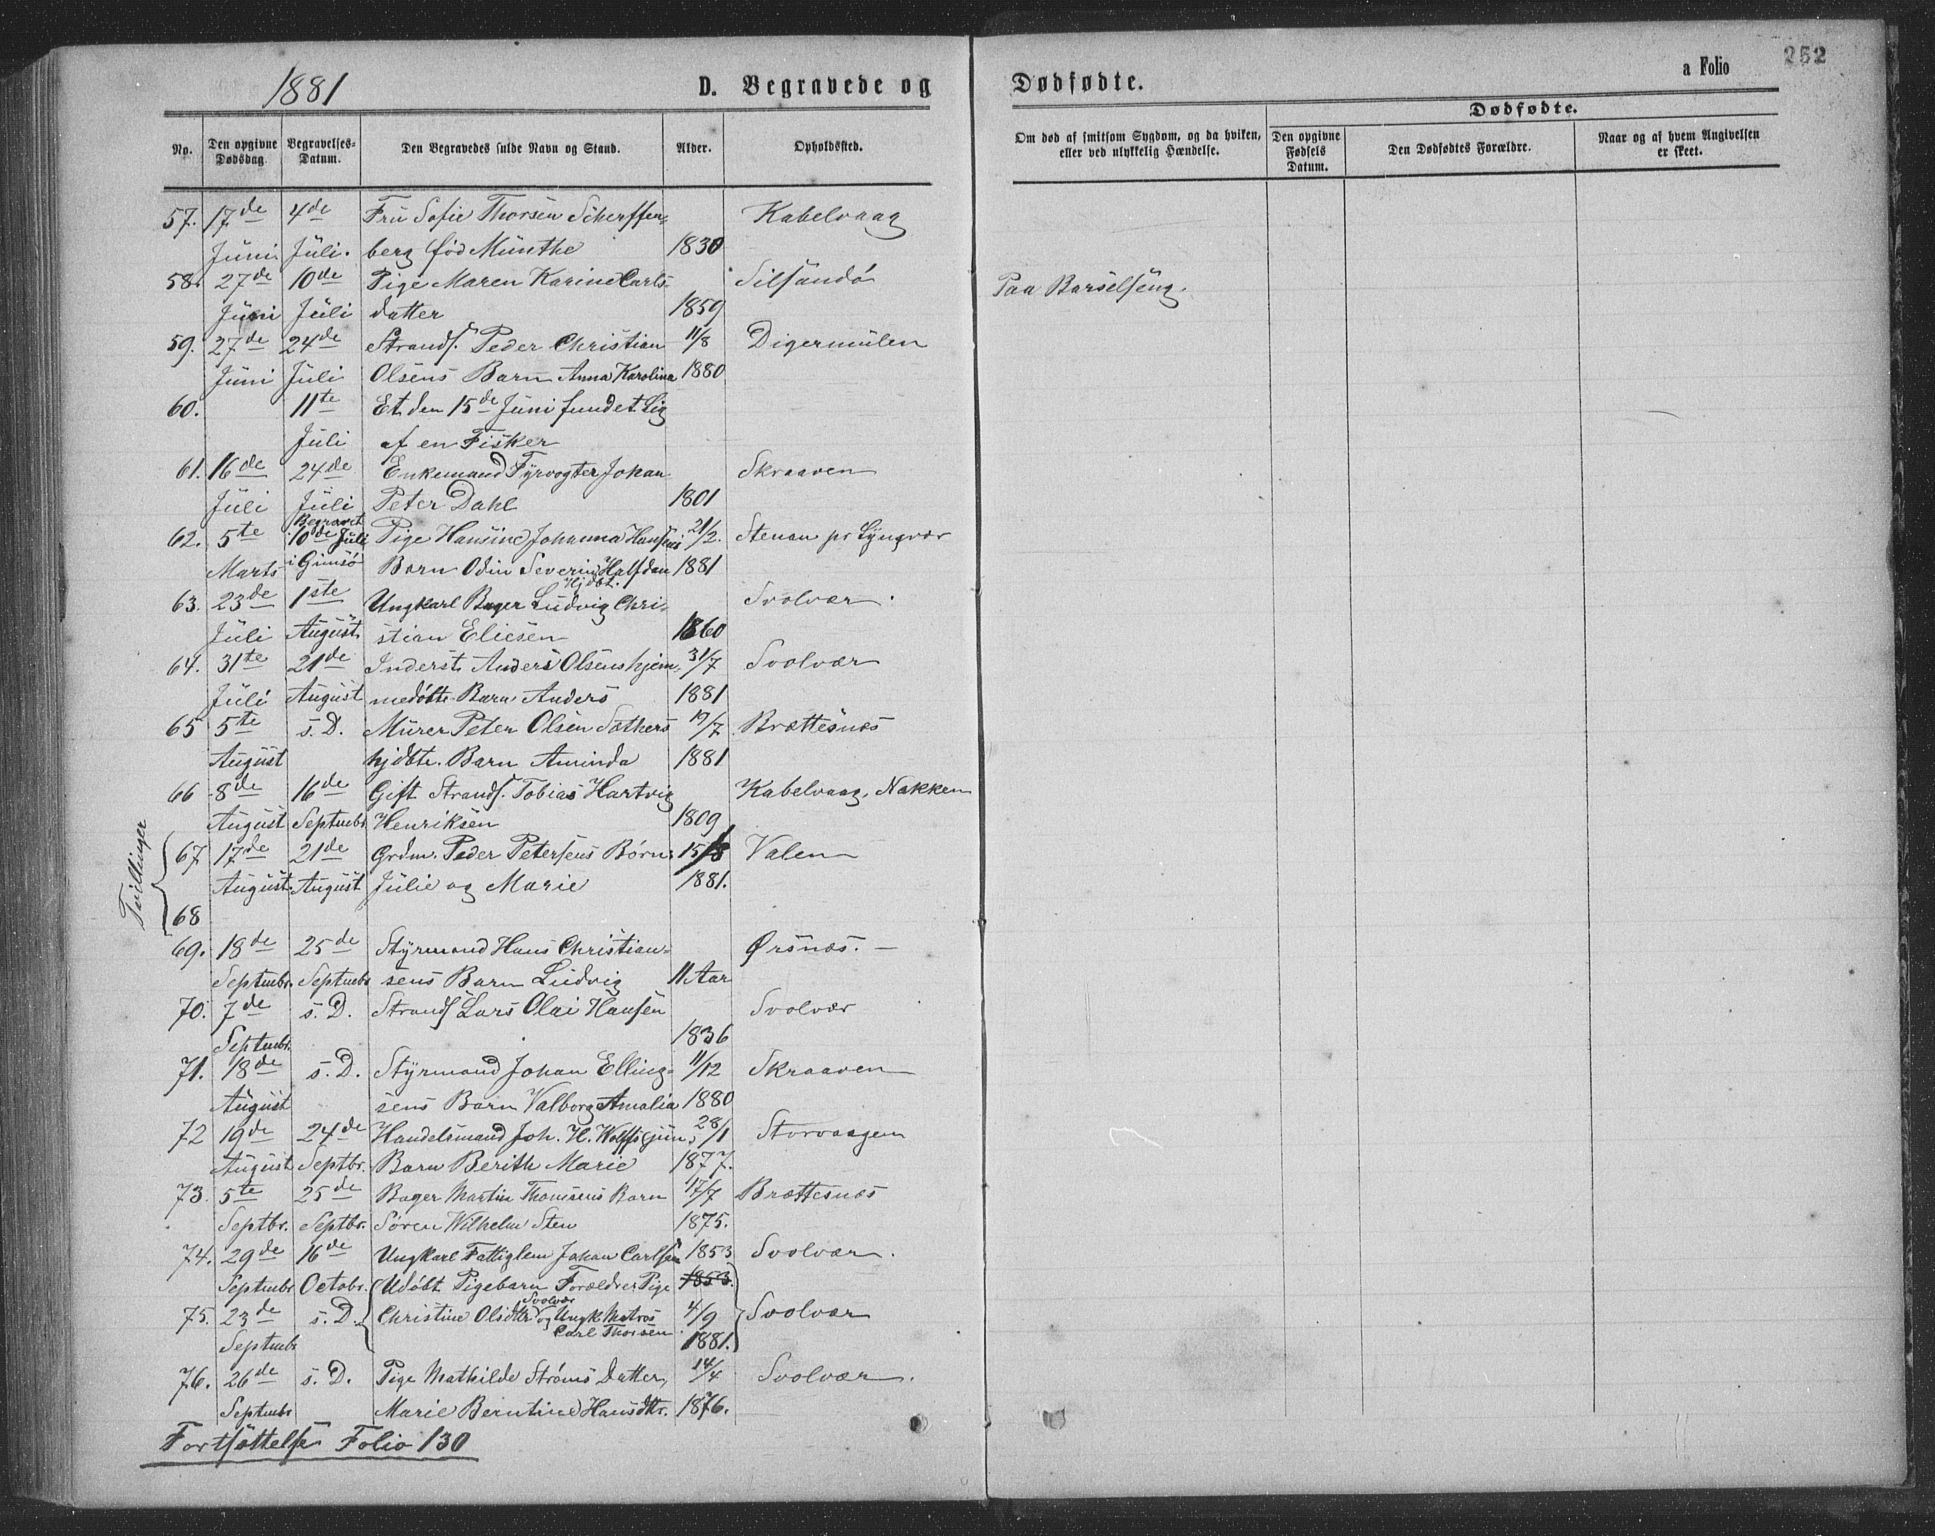 1881
D. Begravede og
Dødfødte.
a Folio
252
No.
Den opgivne Dødsdag.
Begravelses-Datum.
Den Begravedes fulde Navn og Stand.
Alder.
Opholdssted.
Om død af smitsom Sygdom, og da hvilken, eller ved ulykkelig Hændelse.
Dødfødte.
Den opgivne Fødsels Datum.
Den Dødfødtes Forældre.
Naar og af hvem Angivelsen er skeet.
57. 17de 4de Fru Sofie Thorsen Scherffen- Kabelvaag
Juni Juli. berg fød Münthe 1830
58. 27de 10de Pige Maren Karine Carls- Silsandø Paa Barselseng.
Juni Juli datter 1859
59. 27de 24de Strands. Peder Christian 11/8 Digermulen
Juni Juli Olsens Barn Anna Karolina 1880
60. 11te Et den 15de Juni fundet Lig
Juli af en Fisker
61. 16de 24de Enkemand Fyrvogter Johan Skraaven
Juli Juli Peter Dahl 1801
62. 5te Begravet 10de Juli Pige Hansine Johanna Hansens 21/2. Stenan pr Lyngvær
Marts i Gimsø Barn Odin Severin Halfdan 1881
Hjdbt.
63. 23de 1ste Ungkarl Bager Ludvig Chri- Svolvær.
Juli August stian Eliesen 1860
64. 31te 21de Inderst Anders Olsens hjem- 31/7 Svolvær
Juli August medøbte Barn Anders 1881
65 5te s. D. Murer Peter Olsen Sæthers 19/7 Brættesnæs
August hjdbte. Barn Aminda 1881
66 8de 16de Gift Strands. Tobias Hartvig Kabelvaag, Nakken
August Septmbr. Henriksen 1809
Tvillinger
67 17de 21de Grdm. Peder Petersens Børn: 15/8 Valen
August August Julie og Marie 1881.
68
69. 18de 25de Styrmand Hans Christian- Ørsnæs. —
Septmbr. Septmbr sens Barn Ludvig 11 Aar
70. 7de s. D. Strands Lars Olai Hansen Svolvær
Septmbr. 1836
71. 18de s. D. Styrmand Johan Elling- 11/12 Skraaven
August sens Barn Valborg Amalia 1880
72 19de 24de Handelsmand Joh. H. Wolffs jun, 28/1 Storvaagen
August Septbr. Barn Berith Marie 1877.
73. 5te 25de Bager Martin Thomsens Barn 17/7 Brættesnæs
Septbr. Septbr. Søren Wilhelm Sten 1875.
74. 29de 16de Ungkarl Fattiglem Johan Carlsen 1853 Svolvær.
Septmbr Octobr. Udøbt Pigebarn Forældre: Pige 1853.
75. 23de s. D. Christine Olsdttr Svolvær og Ungk Matros 4/9 Svolvær
Septmbr Carl Thorsen 1881.
76. 26de s. D. Pige Mathilde Strøms Datter, 14/4 Svolvær.
Septmbr Marie Berntine Hansdttr. 1876.
Fortsættelse Folio 130